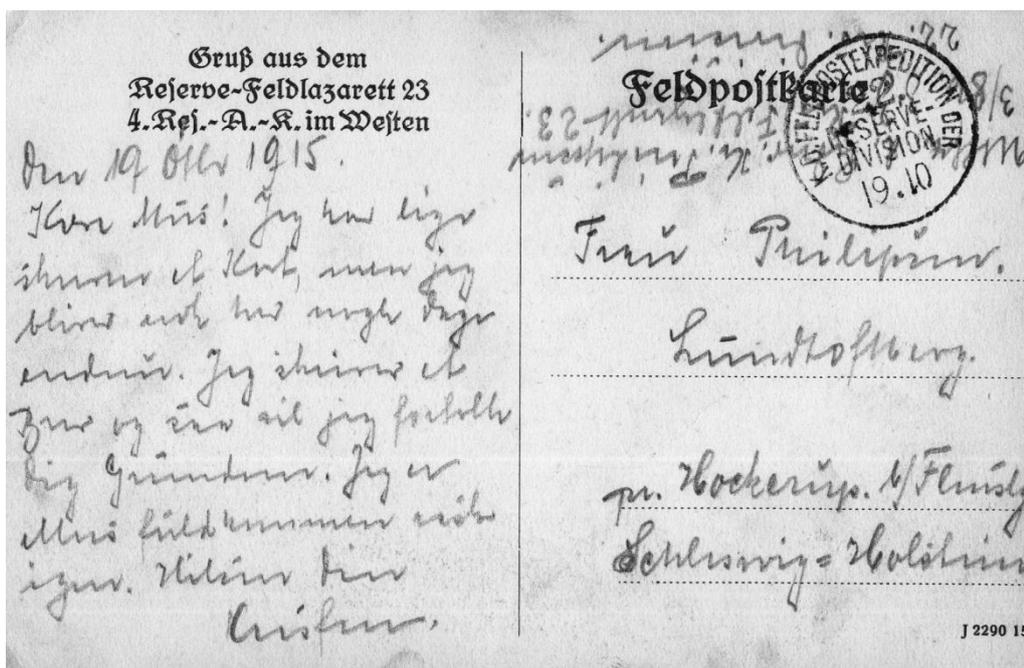 Gruß aus dem
Reserve-Feldlazarett 23
4. Res.-A.-K. im Westen
Den 19 Otbr 1915.
Kære Mus! Jeg har lige
skrevet et Kort, men jeg
bliver nok her nogle Dage
endnu. Jeg skriver et
Brev og saa vil jeg fortælle
dig Grunden. Jeg er
Mus fuldkommen rask
igen. Hilsen Din
Feldpostkarte
K.D. FELDPOSTEXPEDITION DER
RESERVE
DIVISION
19.10
Frau Philipsen.
Lundtoftberg.
pr. Hockerup. b/Flensbg
Schleswig=Holstein
J 2290 15